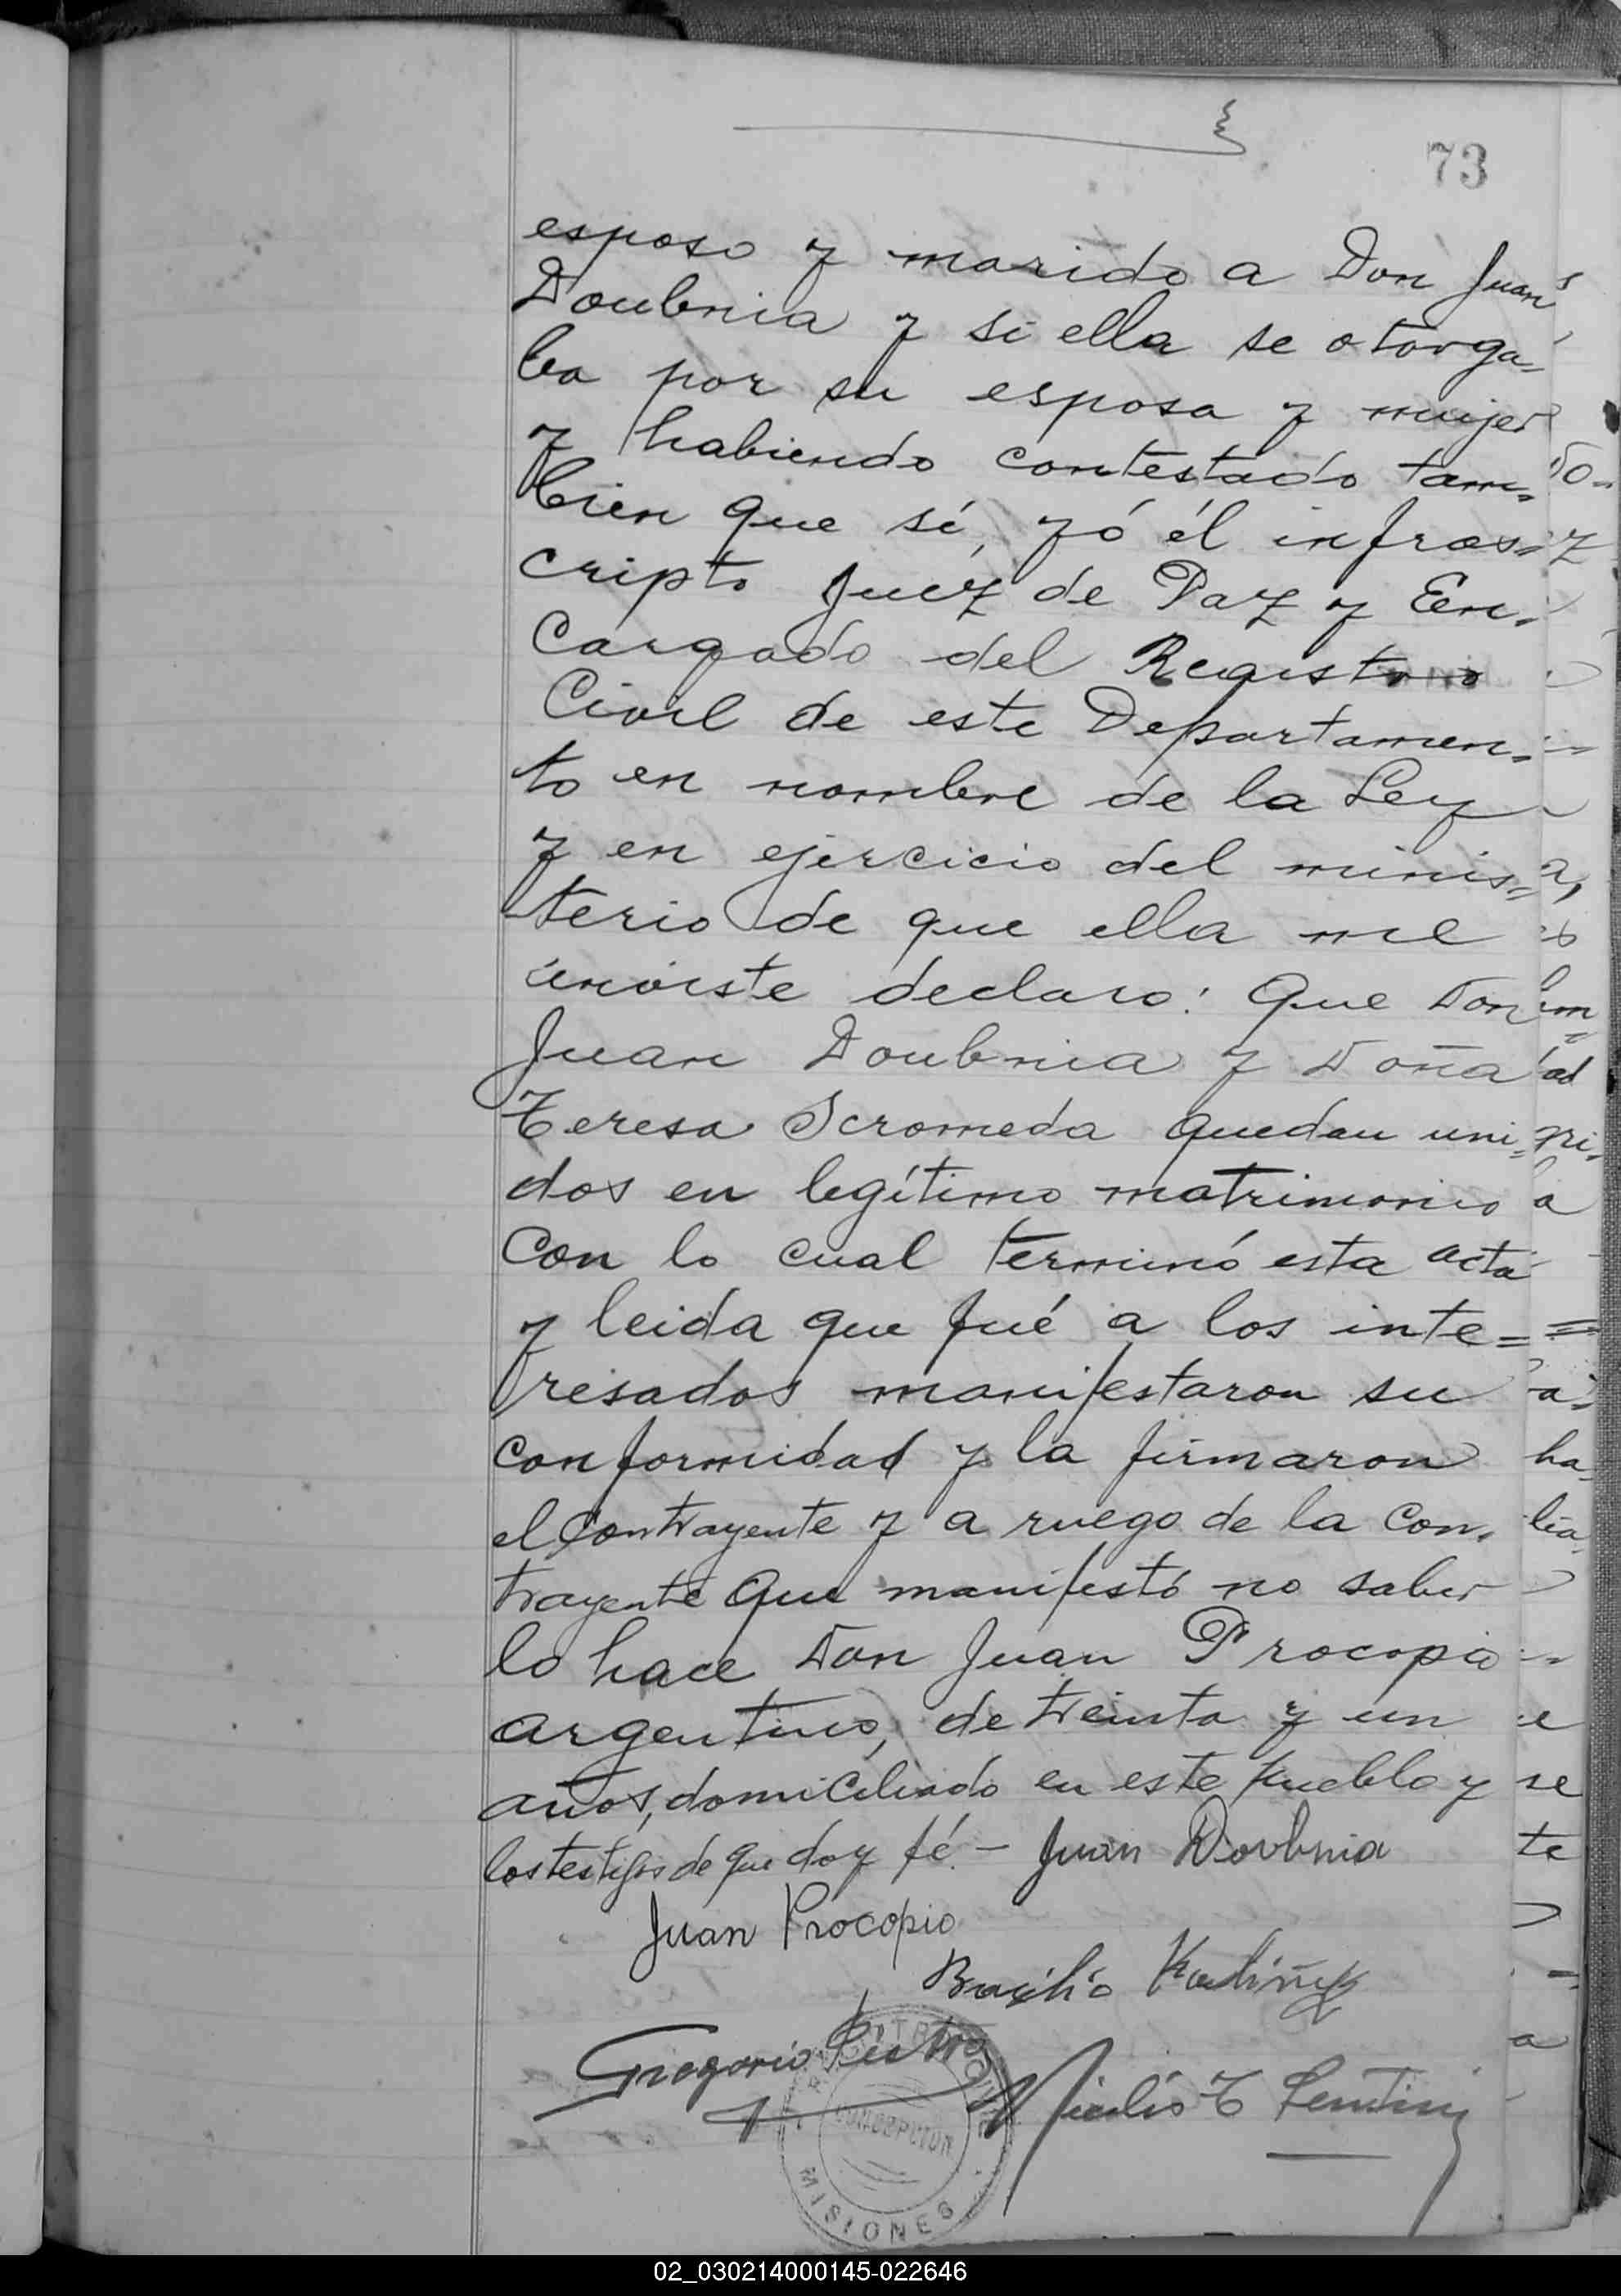 73
esposo y marido a Don Juan
Doubnia y si ella se otorga-
ba por su esposa y mujer
y habiendo contestado tam=
bien que sí, yó él infras=
cripto Juez de Paz y En-
cargado del Registro
Civil de este Departamen=
to en nombre de la Ley
y en ejercicio del minis=
terio de que ella me
inviste declaro: Que Don
Juan Doubnia y Doña
Teresa Scromeda quedan uni=
dos en legítimo matrimonio
con lo cual terminó esta acta
y leida que fué a los inte=
resados manifestaron su
conformidad y la firmaron
el contrayente y a ruego de la con-
trayente que manifestó no saber
lo hace Don Juan Procopio
argentino, de treinta y un
años, domiciliado en este pueblo y
los testigos de que doy fé.- Juan Dovbnia
Juan Procopio
Basilio
Gregorio
CONCEPCION
MISIONES
02_030214000145-022646